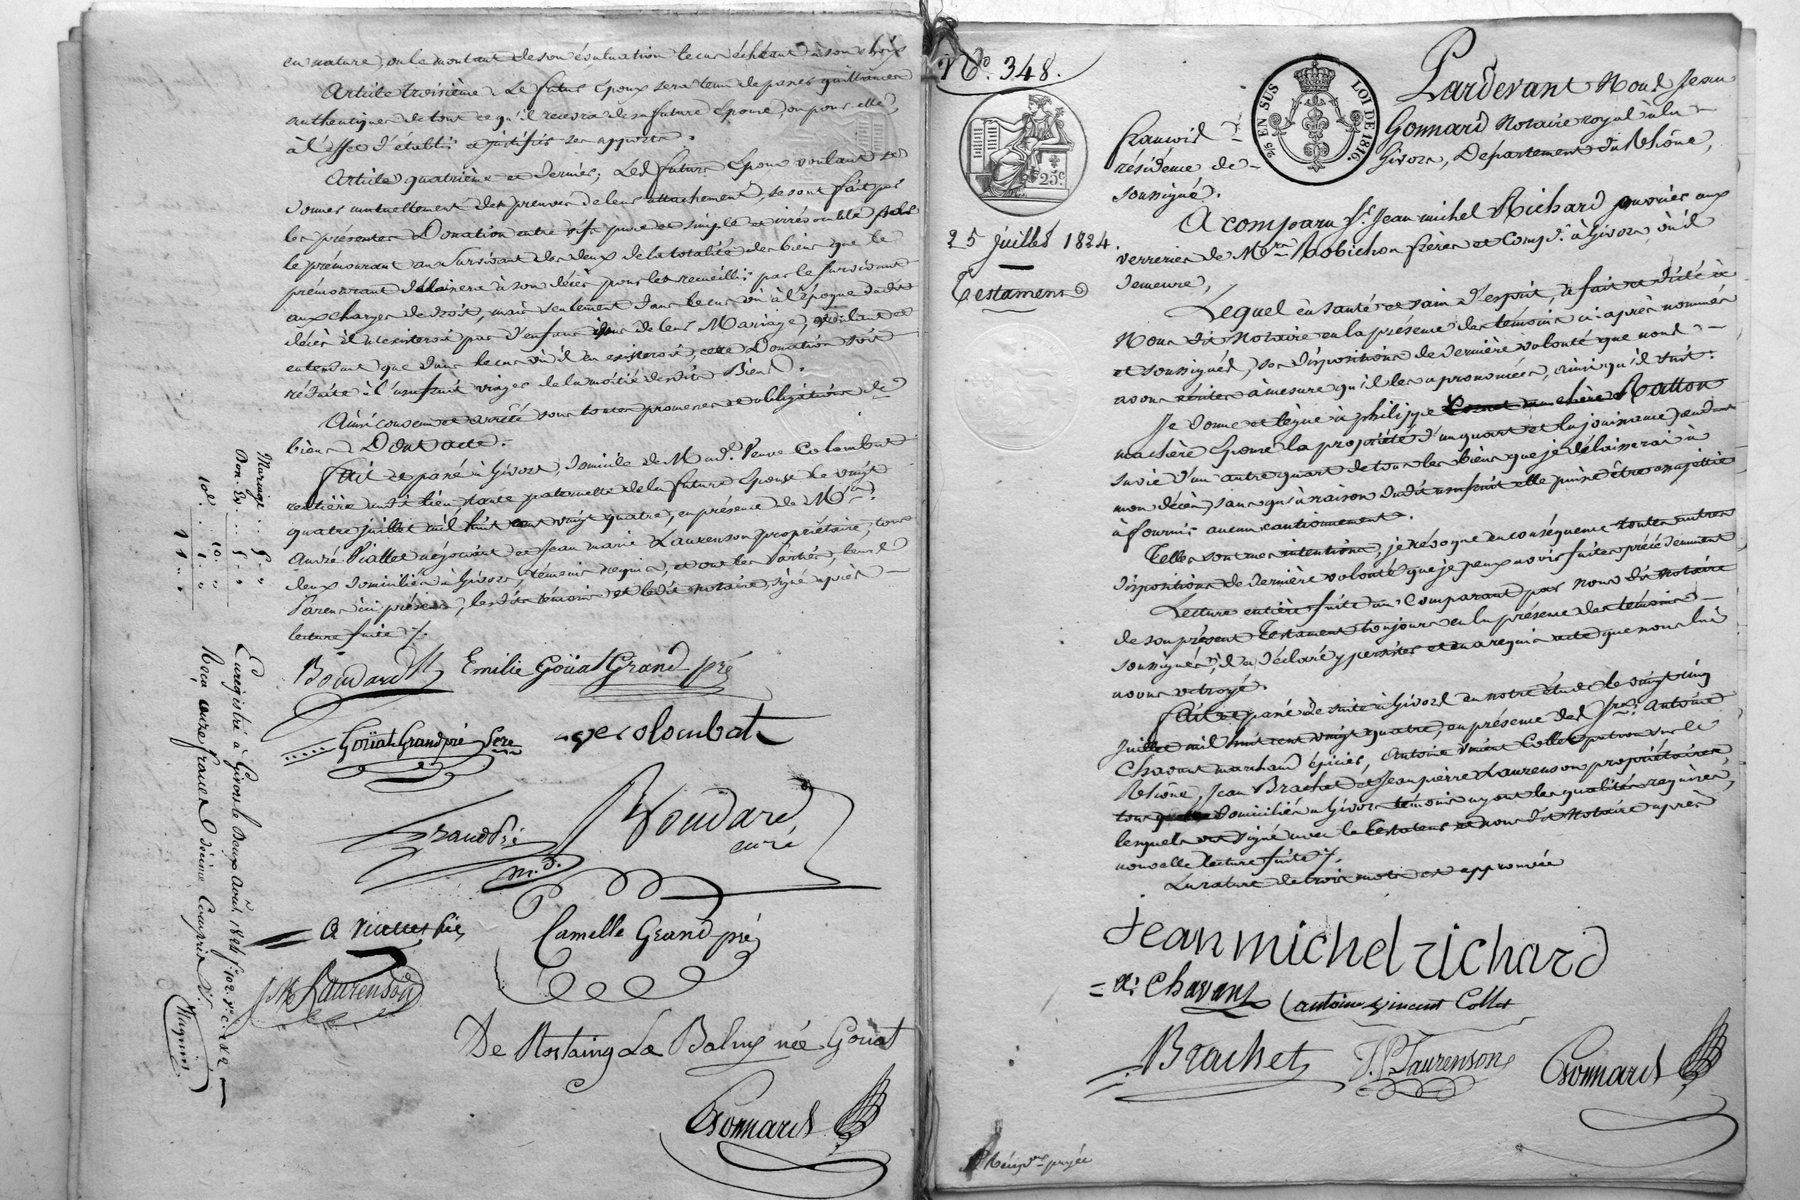 en nature, ou le montant de son évaluation le cas échéant à son choix
Article troisième. Le futur Epoux sera tenu de passer quittances
authentiques de tout ce qu'il recevra de sa future Epouse, ou pour elle,
à l'effet d'établir et justifier ses apports.
Article quatrième et dernier; Les futurs Epoux voulant se
donner mutuellement des preuves de leur attachement, se sont fait par
les présentes Donation entre vifs pure et simple et irrévocable par
le prémourant au Survivant des deux de la totalité des biens que le
prémourant délaissera à son décès pour les recueillir par le survivant
aux charges de droit, mais seulement dans le cas où à l'époque dudit
décès il n'existeroit pas d'enfans de leur Mariage, voulant et
entendant que dans le cas où il en existeroit, cette Donation soit
réduite à l'usufruit viager de la moitié desdits Biens.
Ainsi convenu et arrêté sous toutes promesses et obligations de
biens Dont acte.
Fait et passé à Givors, domicile de Made. Veuve Colombat
rentière audit lieu, tante paternelle de la future Epouse le vingt
quatre juillet mil huit cent vingt quatre, en présence de Mrs.
André Viallet négociant et Jean marie Laurenson propriétaire, tous
deux domiciliés à Givors, témoins requis, et ont les parties, leurs
Parens ici présens, lesdits témoins et ledit notaire, signé après
lecture faite ./.
Boudard Emilie Goüat Grand-pré
Goüat Grand pré père ve colombat
Grand Pré
Boudard
curé
Camille Grand pré
J M Laurenson
De Rostaing La Balmy née Goüat
Gonnard
Mariage
Don
Enregistré à Givors le deux août 1824 fo. 102
Reçu onze francs dixième compris
No. 348.
25 EN SUS LOI DE 1816.
25c
25 juillet 1824.
Testament
Pardevant Nous Jean
François Gonnard Notaire royal à la
résidence de Givors, Département du Rhône,
soussigné.
A comparu Sr. Jean michel Richard ouvrier aux
verreries de Mrs. Robichon frères et Compe. à Givors, où il
demeure,
Lequel en santé et sain d'esprit, a fait et dicté à
Nous dit Notaire en la présence des témoins ci-après nommés
et soussignés, ses dispositions de dernière volonté que nous
avons écrites à mesure qu'il les a prononcées, ainsi qu'il suit:
Je donne et lègue à philippe Ratton
ma chère Epouse la propriété d'un quart et la jouissance pendant
sa vie d'un autre quart de tous les biens que je délaisserai à
mon décès, sans qu'à raison dudit usufruit elle puisse être assujettie
à fournir aucun cautionnement.
Telles sont mes intentions, je révoque en conséquence toutes autres
dispositions de dernière volonté que je peux avoir faites précédemment
Lecture entière faite au Comparant par Nous dit Notaire
de son présent testament toujours en la présence des témoins
soussignés, il a déclaré y persister et en a requis acte que nous lui
avons octroyé.
Fait et passé de suite à Givors en notre étude le vingt cinq
juillet mil huit cent vingt quatre, en présence des Srs. Antoine
Chavant marchand épicier, Antoine vincent Collet patron sur le
Rhône, Jean Brachet et Jean pierre Laurenson propriétaires
tous domiciliés à Givors témoins ayant les qualités requises,
lesquels ont signé avec le testateur et nous dit Notaire après
nouvelle lecture faite ./.
La rature de trois mots est approuvée
Jean michel richard
A: Chavant antoine vincent Collet
Brachet J. P. Laurenson Gonnard